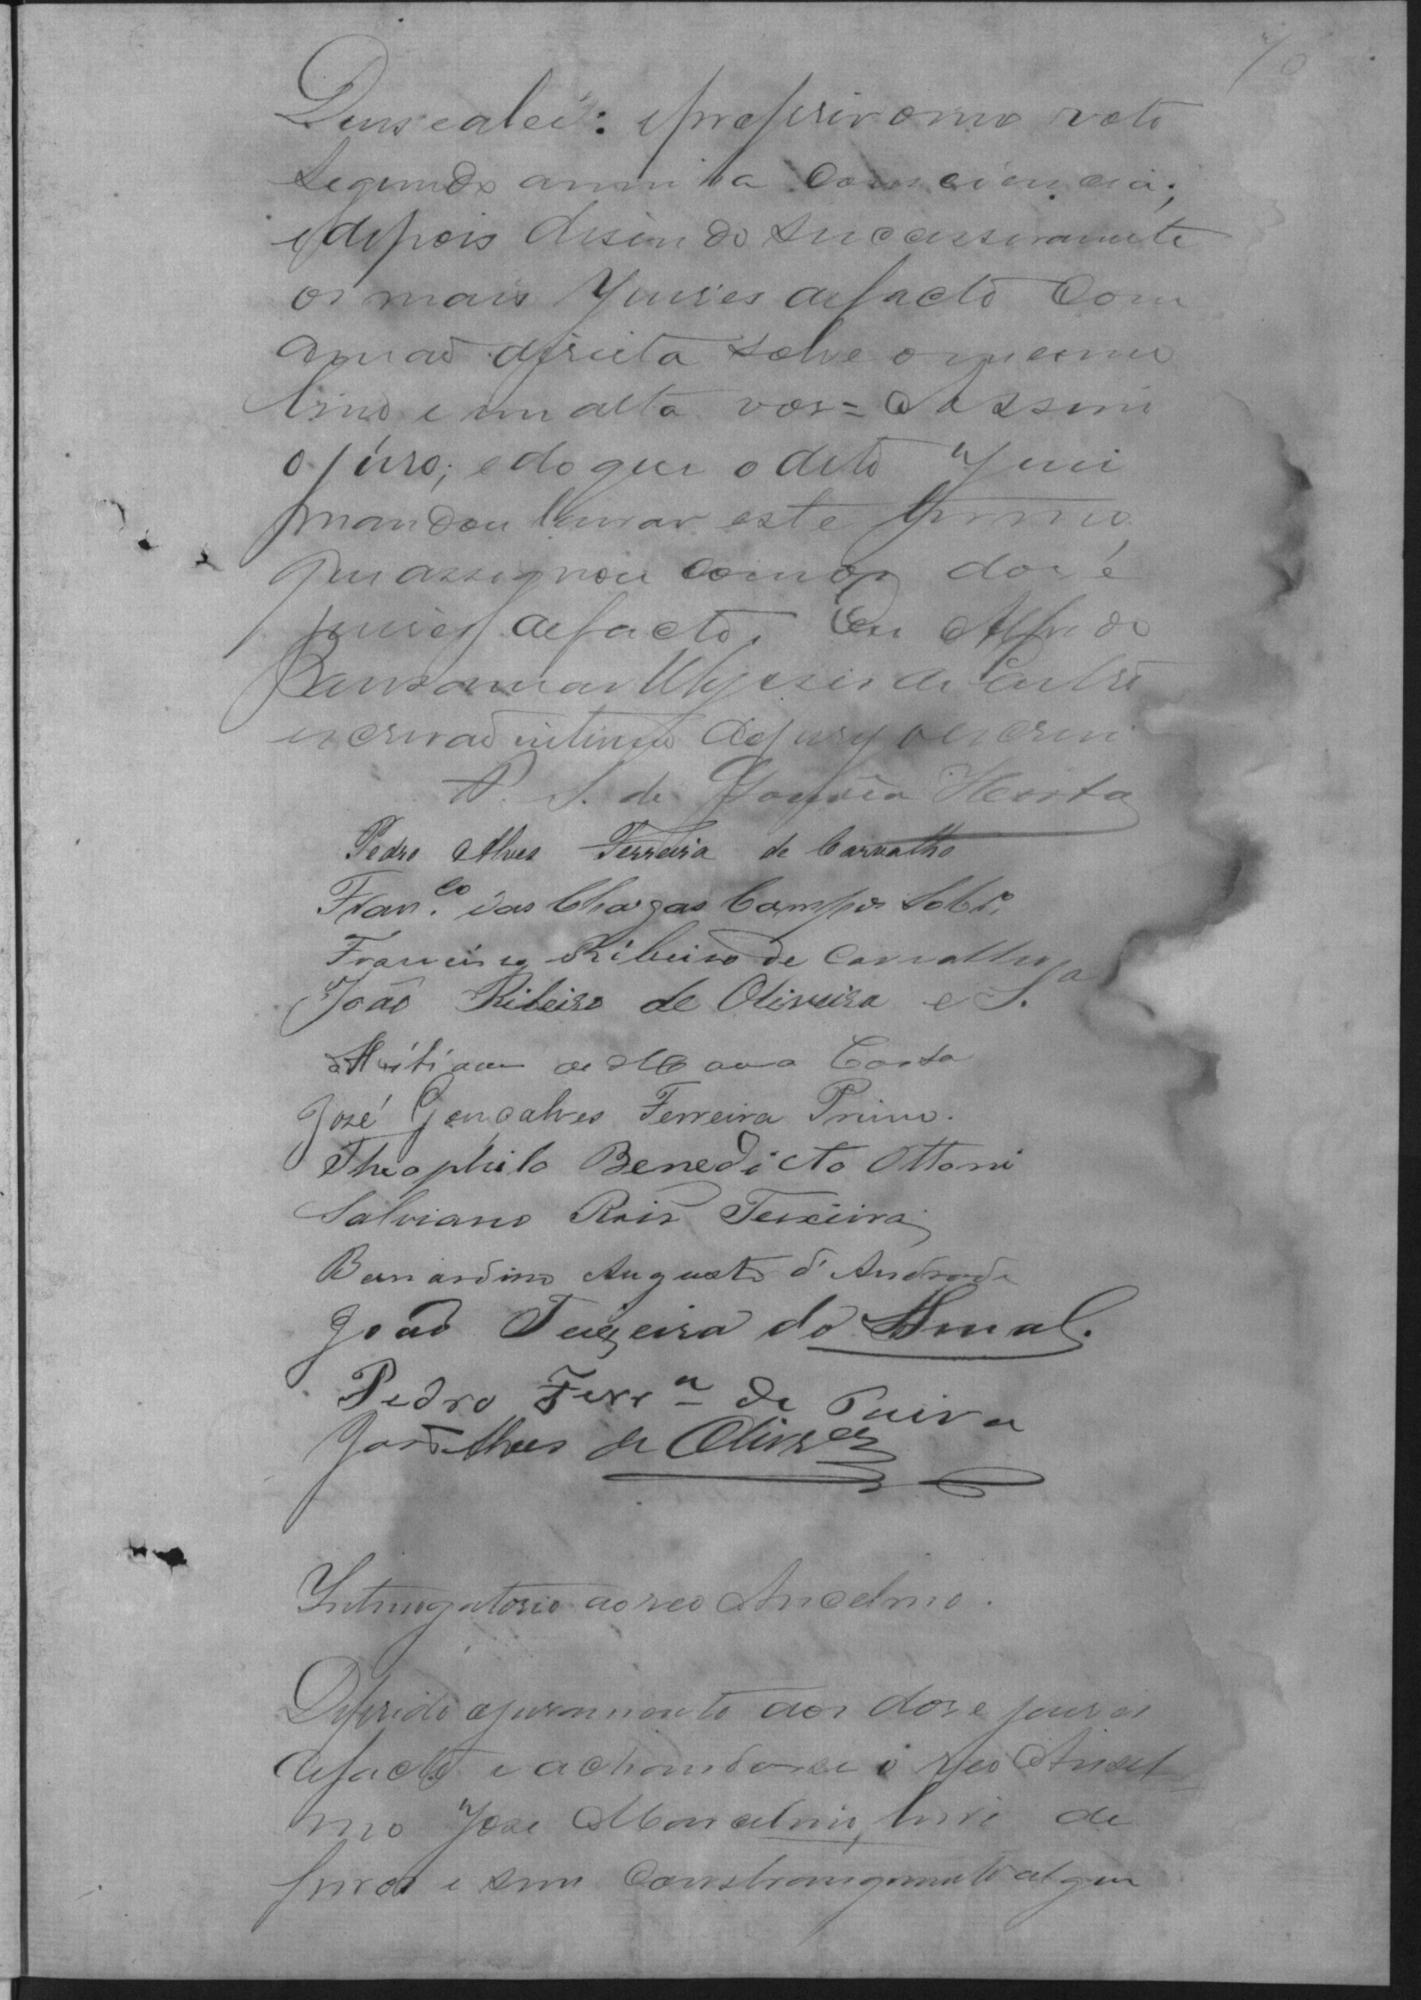 70
Deus e a lei: e proferir o meu voto
segundo a minha consciencia;
e depois disendo sucessivamente
os mais Juises de facto com
a mão direita sobre o mesmo
livro e em alta vos = Assim
o juro; e do que o dito Juis
mandou lavrar este termo
que assignou com os dose
juises de facto. Eu Alfredo
de Castro
escrivão interino do jury o escrevi
P. S. de Gouvêa Horta
Pedro Alves Ferreira de Carvalho
Fran.co das Chagas Campos Sobr.o
Francisco Ribeiro de Carvalho
João Ribeiro de Oliveira e S.a
de Costa
José Gonçalves Ferreira Primo.
Theophilo Benedicto Ottoni
Salviano Reis Teixeira
Bernardino Augusto d'Andrade
João Teixeira do Amal.
Pedro Ferr.a de Paiva
José Alves de Olivr.a
Interrogatorio ao reo Anselmo.
Deferido o juramento aos dose juises
de facto e achando-se o reo Ansel
mo José Marcelino, livre de
ferros e sem constrangimento algum